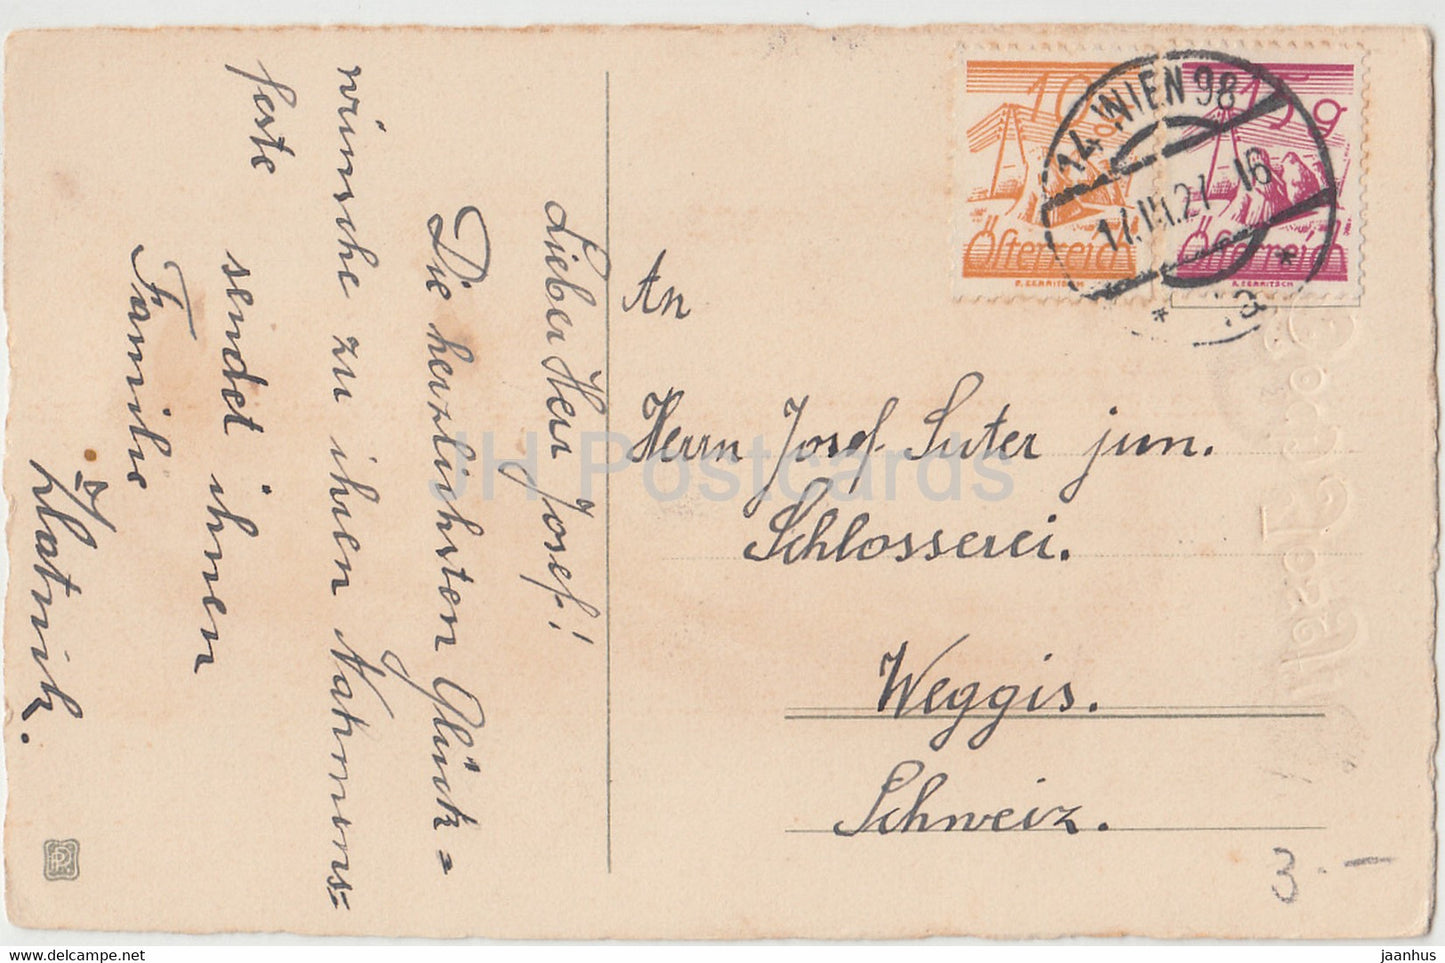 Lieber Herr Josef!
Die herzlichsten Glück=
wünsche zu ihren Nahmens=
feste sendet ihnen
Familie
Zlatnik.
10
Österreich
R. ZERRITSCH
15 g
Österreich
R. ZERRITSCH
14 WIEN 98
16
An
Herrn Josef Suter jun.
Schlosserei.
Weggis.
Schweiz.
3.-
JH Postcards
www.delcampe.net
jaanhus